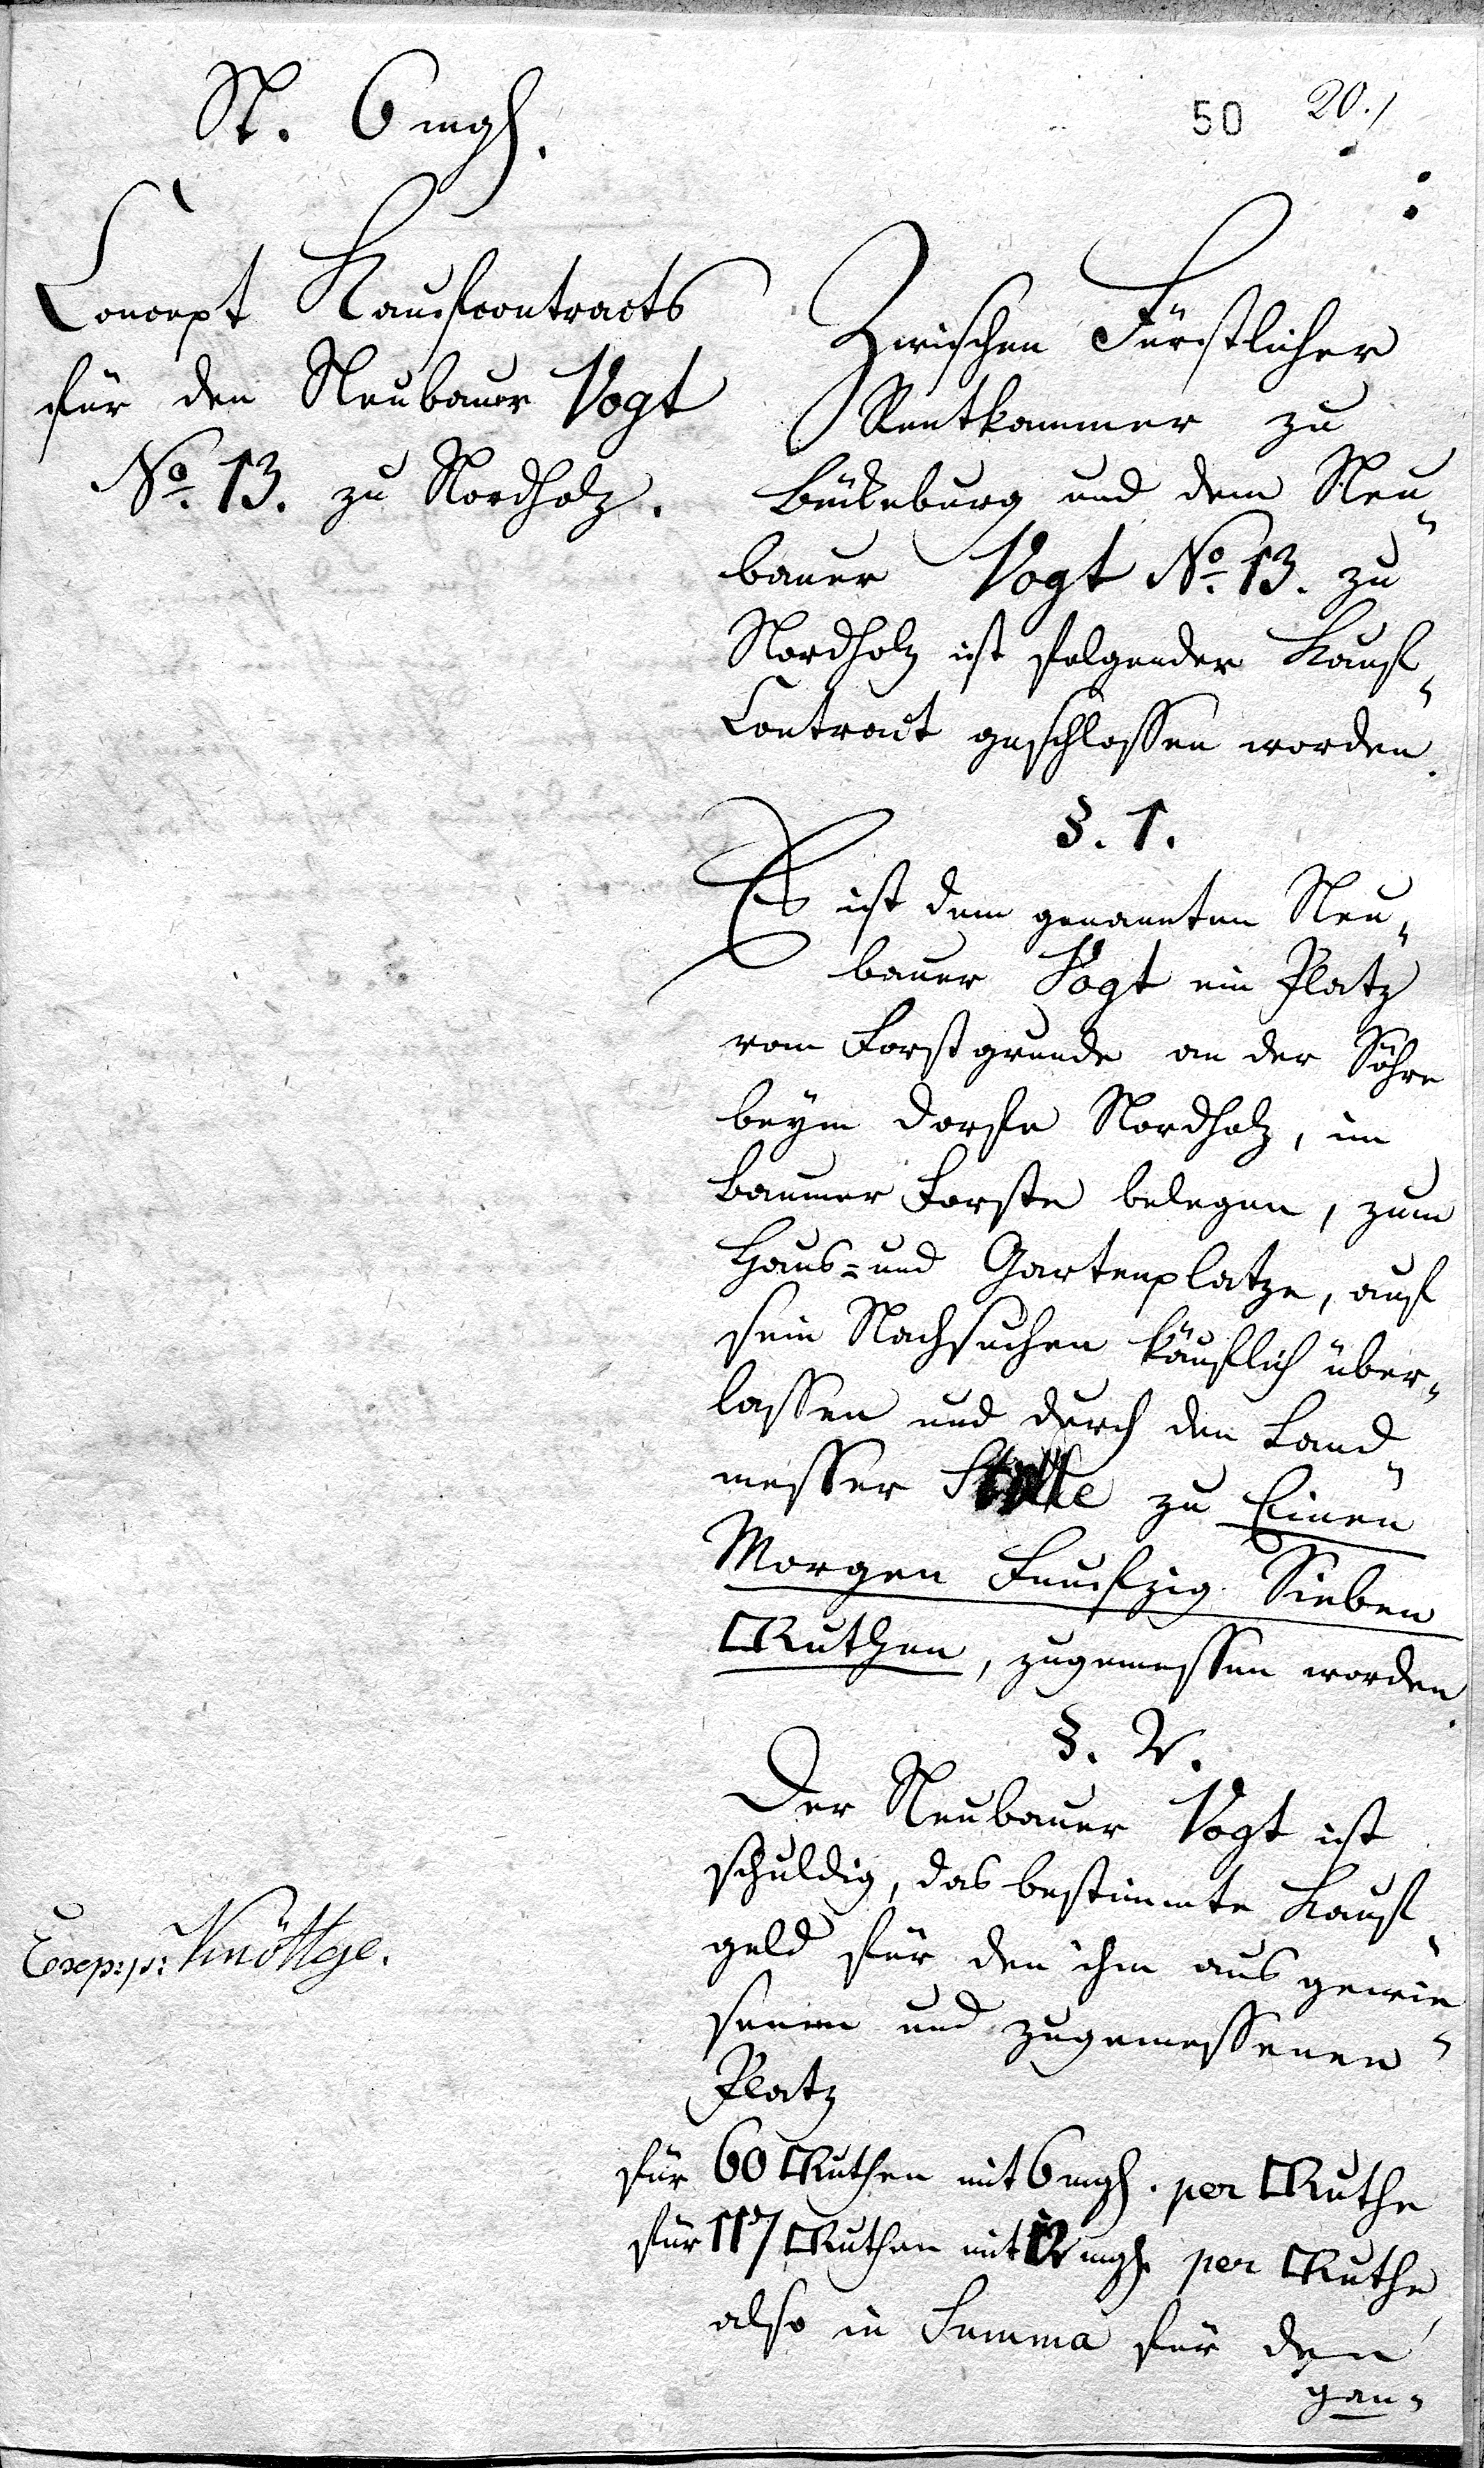 St. 6 mgl.
50 20./
Concept Kaufcontracts
für den Neubauer Vogt
No. 13. zu Nordholz.
Zwischen Fürstlicher
Rentkammer zu
Bückeburg und dem Neu-
bauer Vogt No. 13. zu
Nordholz ist folgender Kauf-
Contract geschlossen worden.
§. 1.
Es ist dem genannten Neu-
bauer Vogt ein Platz
vom Forstgrunde an der Söhre
beym Dorfe Nordholz, im
Baumer Forste belegen, zum
Haus- und Gartenplatze, auf
sein Nachsuchen käuflich über-
lassen und durch den Land-
messer zu Einen
Morgen Funfzig Sieben
□Ruthen, zugemessen worden.
§. 2.
Der Neubauer Vogt ist
schuldig, das bestimmte Kauf-
geld für den ihm ausgewie-
senen und zugemessenen
Platz
für 60 □Ruthen mit 6 mgl. per □Ruthe
für 117 □Ruthen mit 12 mgl. per □Ruthe
also in Summa für den
gan-
Exp: p: Knöttge.